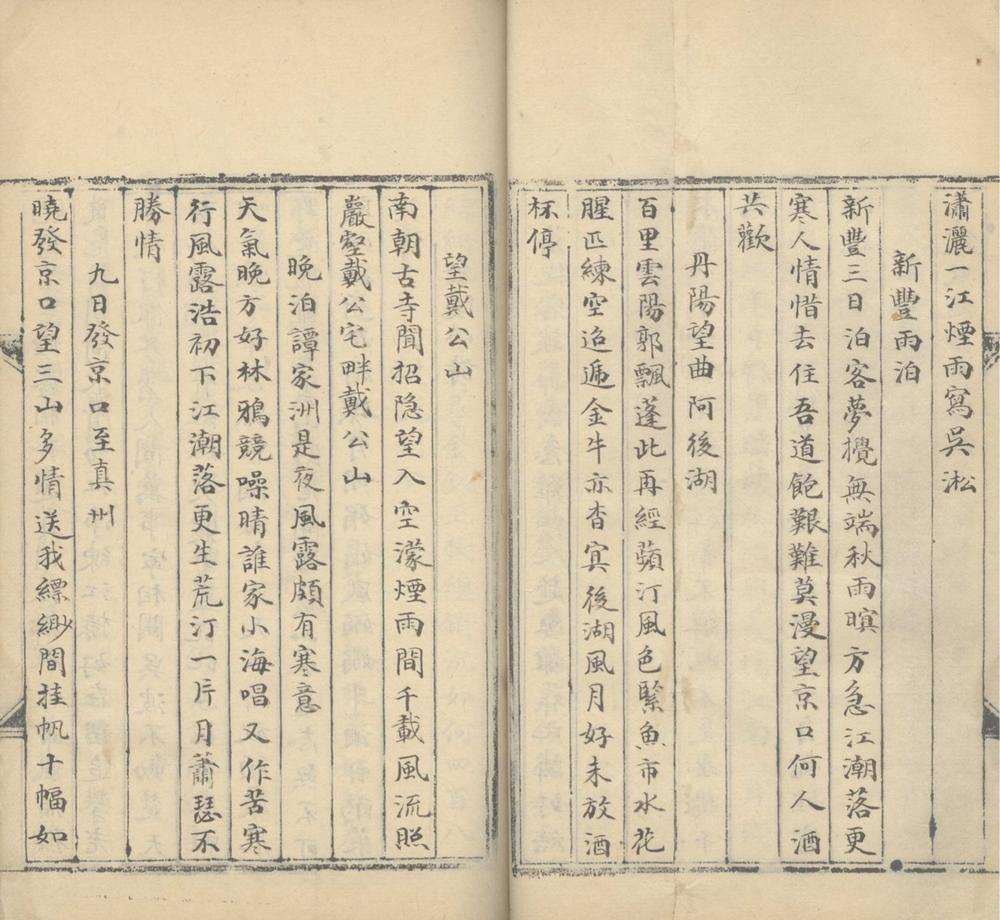 瀟灑一江煙雨寫吳淞
新豐雨泊
新豐三日泊客夢攪無端秋雨暝方急江潮落更
寒人情惜去住吾道飽艱難莫漫望京口何人酒
共歡
丹陽望曲阿後湖
百里雲陽郭飄蓬此再經蘋汀風色緊魚市水花
腥匹練空迢遞金牛亦杳冥後湖風月好未放酒
杯停
望戴公山
南朝古寺聞招隐望入空濛煙雨間千載風流照
巖壑戴公宅畔戴公山
晚泊譚家洲是夜風露頗有寒意
天氣晚方好林鴉競噪晴誰家小海唱又作苦寒
行風露浩初下江潮落更生荒汀一片月蕭瑟不
勝情
九日發京口至真州
曉發京口望三山多情送我縹緲間挂帆十幅如